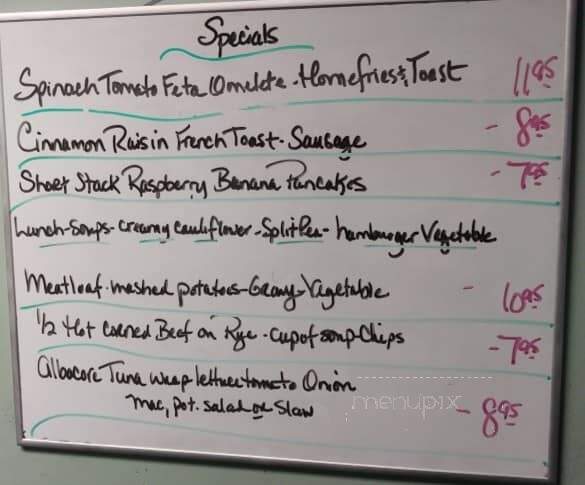 Specials
Spinach Tomato Feta Omelete. Homefries & Toast 11.95
Cinnamon Raisin French Toast - Sausage - 8.95
Short Stack Raspberry Banana Pancakes - 7.95
Lunch - Soups - creamy cauliflower - Split Pea - hamburger Vegetable
Meatloaf - mashed potatoes - Gravy - Vegetable - 10.95
1/2 Hot Corned Beef on Rye - cup of soup - Chips - 7.95
Albacore Tuna wrap lettuce tomato Onion
Mac, pot. salad or Slaw - 8.95
menupix